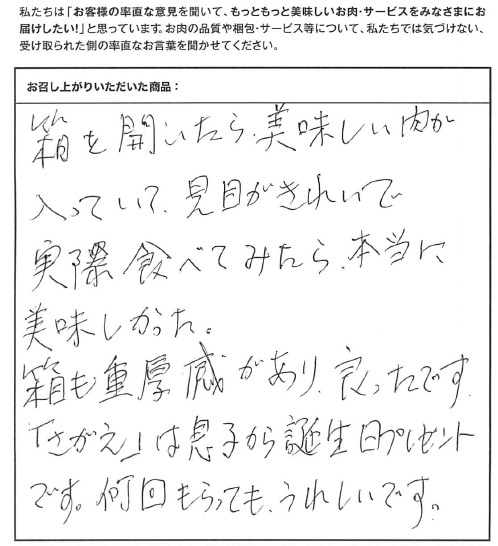 私たちは「お客様の率直な意見を聞いて、もっともっと美味しいお肉・サービスをみなさまにお
届けしたい!」と思っています。お肉の品質や梱包・サービス等について、私たちでは気づけない、
受け取られた側の率直なお言葉を聞かせてください。
お召し上がりいただいた商品：
箱を開いたら、美味しい肉が
入っていて、見目がきれいで
実際食べてみたら、本当に
美味しかった。
箱も重厚感があり、良ったです。
「さがえ」は息子から誕生日プレゼント
です。何回もらっても、うれしいです。